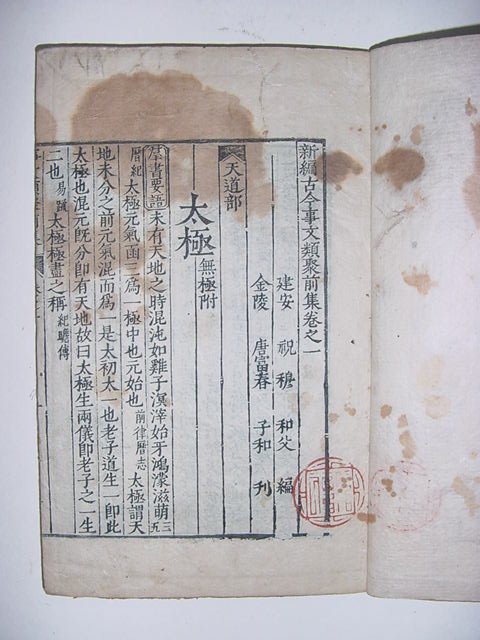 新編古今事文類聚前集卷之一
建安 祝穆 和父 編
金陵 唐富春 子和 刊
天道部
太極 無極附
羣書要語 未有天地之時混沌如雞子溟涬始牙鴻濛滋萌 三五
曆紀 太極元氣函三爲一極中也元始也 前律曆志 太極謂天
地未分之前元氣混而爲一是太初太一也老子道生一即此
太極也混元既分即有天地故曰太極生兩儀即老子之一生
二也 易䟽 太極極盡之稱 紀瞻傳